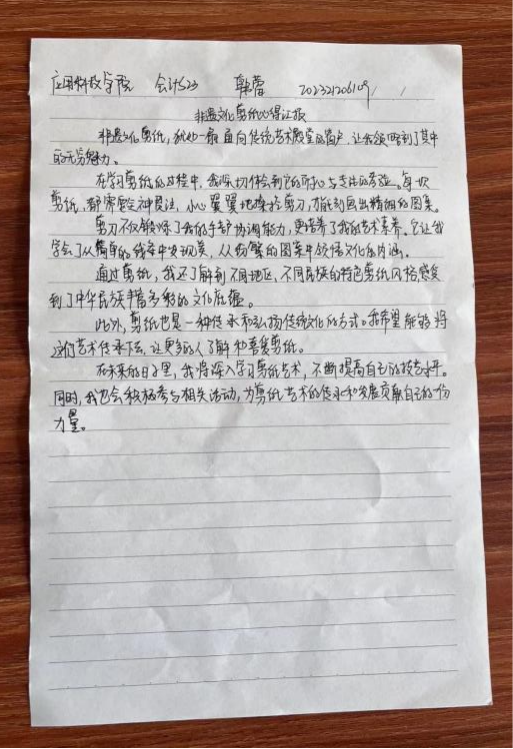 应用科技学院 会计523 郭蕾 202321206109
非遗文化剪纸心得汇报
非遗文化剪纸,犹如一扇通向传统艺术殿堂的窗户,让我领略到了其中
的无穷魅力。
在学习剪纸的过程中,我深切体会到它的耐心与专注的考验。每一次
剪纸,都需要全神贯注,小心翼翼地操控剪刀,才能刻画出精细的图案。
剪刀不仅锻炼了我的手部协调能力,更培养了我的艺术素养。它让我
学会了从简单的线条中发现美,从纷繁的图案中领悟文化的内涵。
通过剪纸,我还了解到不同地区,不同民族的特色剪纸风格感受
到了中华民族丰富多彩的文化底蕴。
此外,剪纸也是一种传承和弘扬传统文化的方式。我希望能够将
这们艺术传承下去,让更多的人了解和喜爱剪纸。
在未来的日子里,我将深入学习剪纸艺术,不断提高自己的技艺水平。
同时,我也会积极参与相关活动,为剪纸艺术的传承和发展贡献自己的一份
力量。